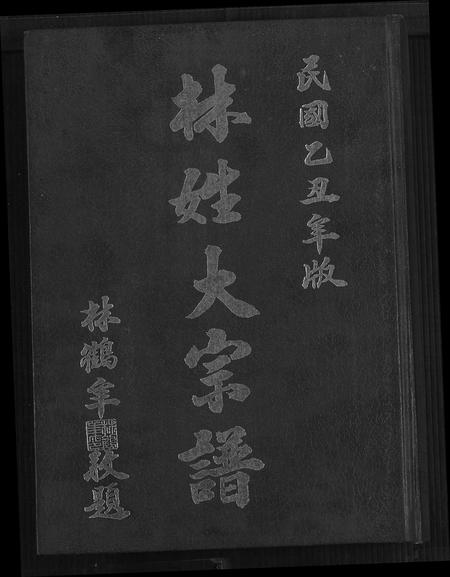 民國乙丑年版
林姓大宗譜
林鶴年敬題